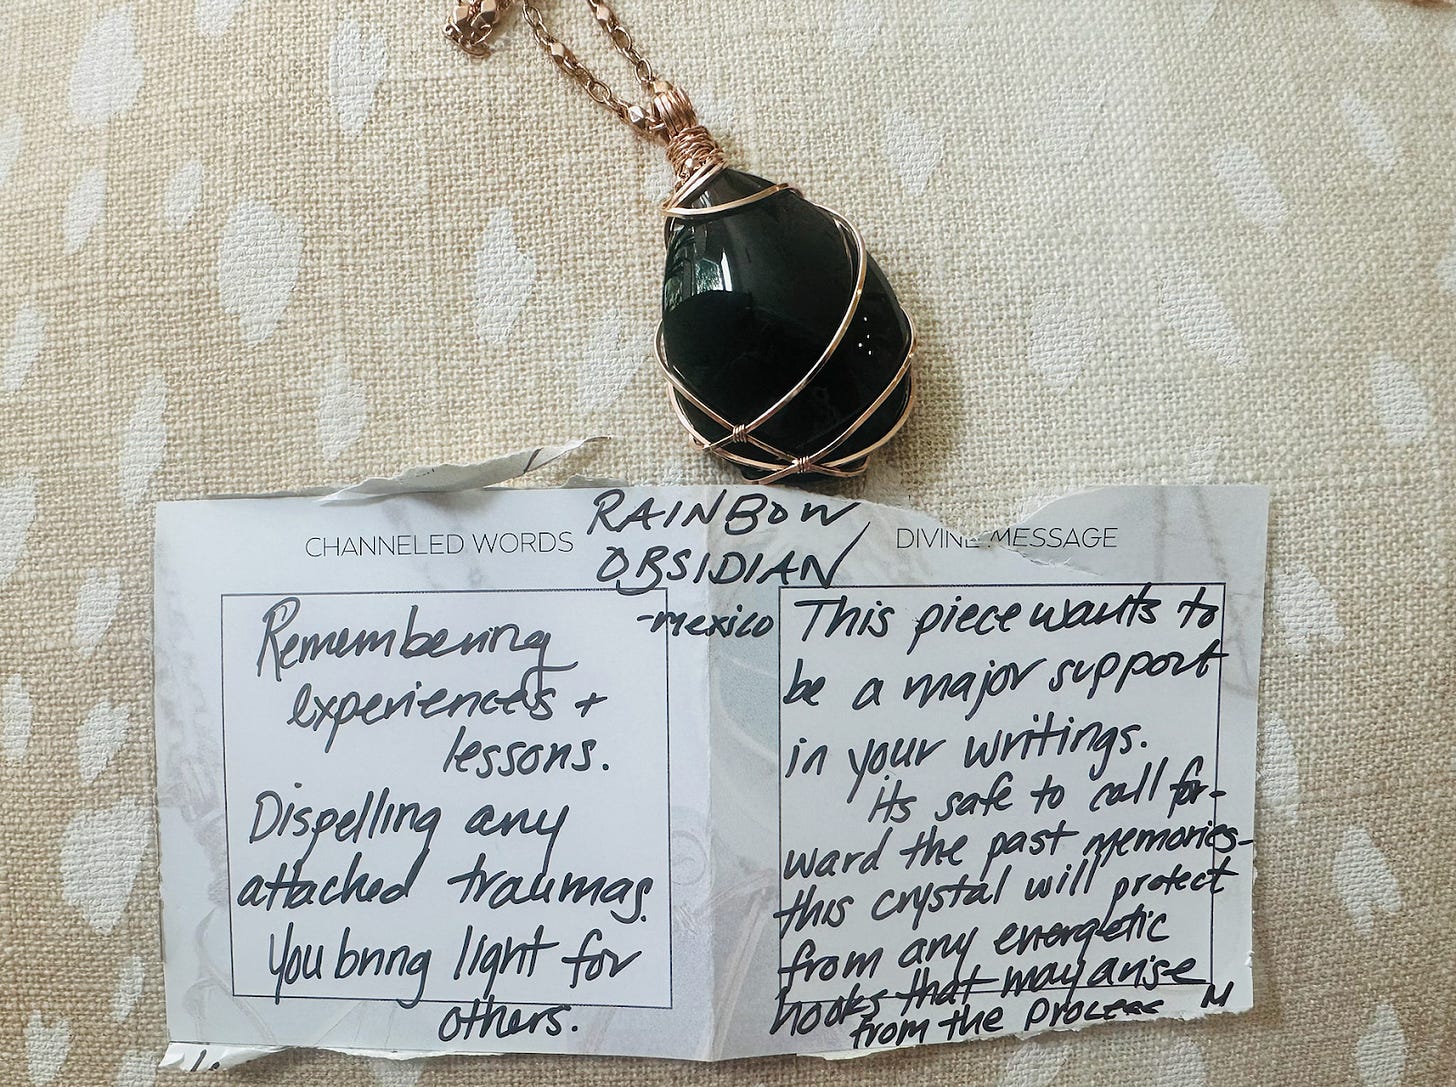 RAINBOW
OBSIDIAN
-mexico
CHANNELED WORDS
Remembering
experiences +
lessons.
Dispelling any
attached traumas.
You bring light for
others.
DIVINE MESSAGE
This piece wants to
be a major support
in your writings.
its safe to call for-
ward the past memories-
this crystal will protect
from any energetic
hooks that may arise
from the process M